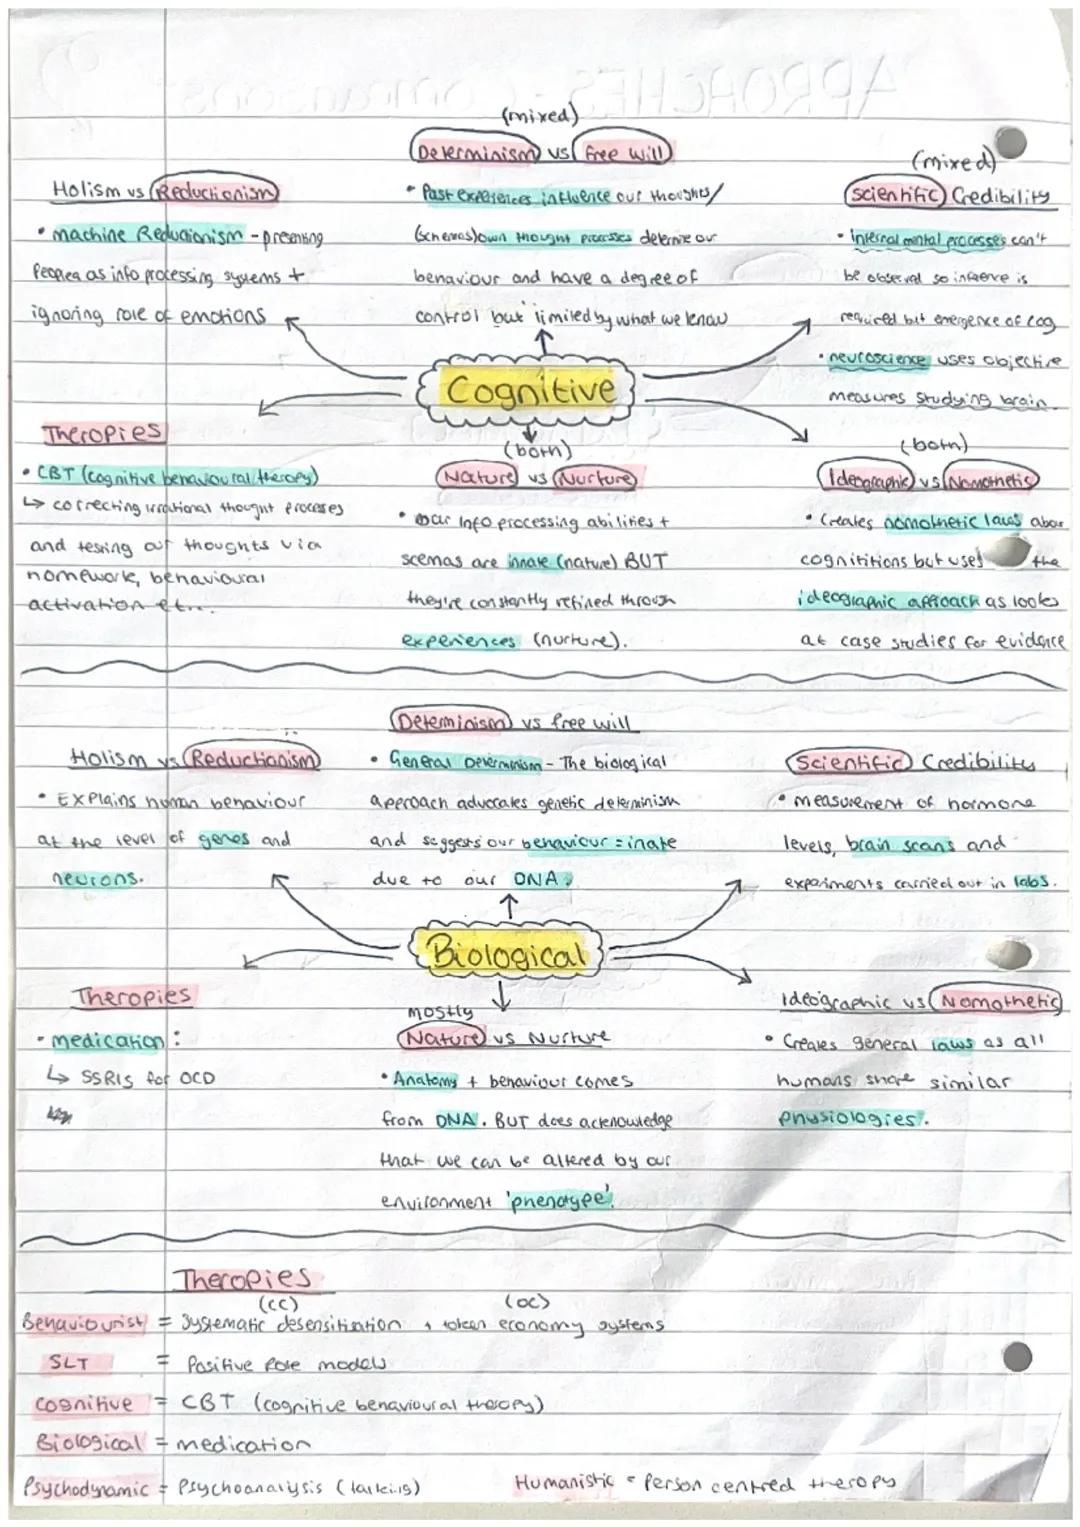 (mixed)
Determinism vs free will
• Past experiences influence our thoughts/
(schemas) own thought processes determine our
behaviour and have a degree of
control but limited by what we know
Holism vs Reductionism
• machine Reductionism - presenting
People as info processing systems +
ignoring role of emotions
(mixed)
Scientific Credibility
• internal mental processes can't
be observed so inference is
required but emergence of cog
• neuroscience uses objective
measures studying brain
Cognitive
Therapies
• CBT (cognitive behavioural therapy)
↳ correcting irrational thought processes
and testing out thoughts via
homework, behavioural
activation etc...
(both)
Nature vs Nurture
• our Info processing abilities +
scemas are innate (nature) BUT
they're constantly refined through
experiences (nurture).
(both)
Ideographic vs Nomothetic
• Creates nomothetic laws about
cognititions but uses the
ideographic approach as looks
at case studies for evidence
Determinism vs free will
• General Determinism - The biological
approach advocates genetic determinism
and suggests our behaviour = inate
due to our DNA.
Holism vs Reductionism
• Explains human behaviour
at the level of genes and
neurons.
Scientific Credibility
• measurement of hormone
levels, brain scans and
experiments carried out in labs.
Biological
Therapies
• medication:
↳ SSRIs for OCD
mostly
Nature vs Nurture
• Anatomy + behaviour comes
from DNA. BUT does acknowledge
that we can be altered by our
environment 'phenotype'.
Ideographic vs Nomothetic
• Creates general laws as all
humans share similar
physiologies.
Therapies
(cc) (oc)
Behaviourist = Systematic desensitisation + token economy systems
SLT = Positive role models
Cognitive = CBT (cognitive behavioural therapy)
Biological = medication
Psychodynamic = Psychoanalysis (talking) Humanistic = Person centred therapy